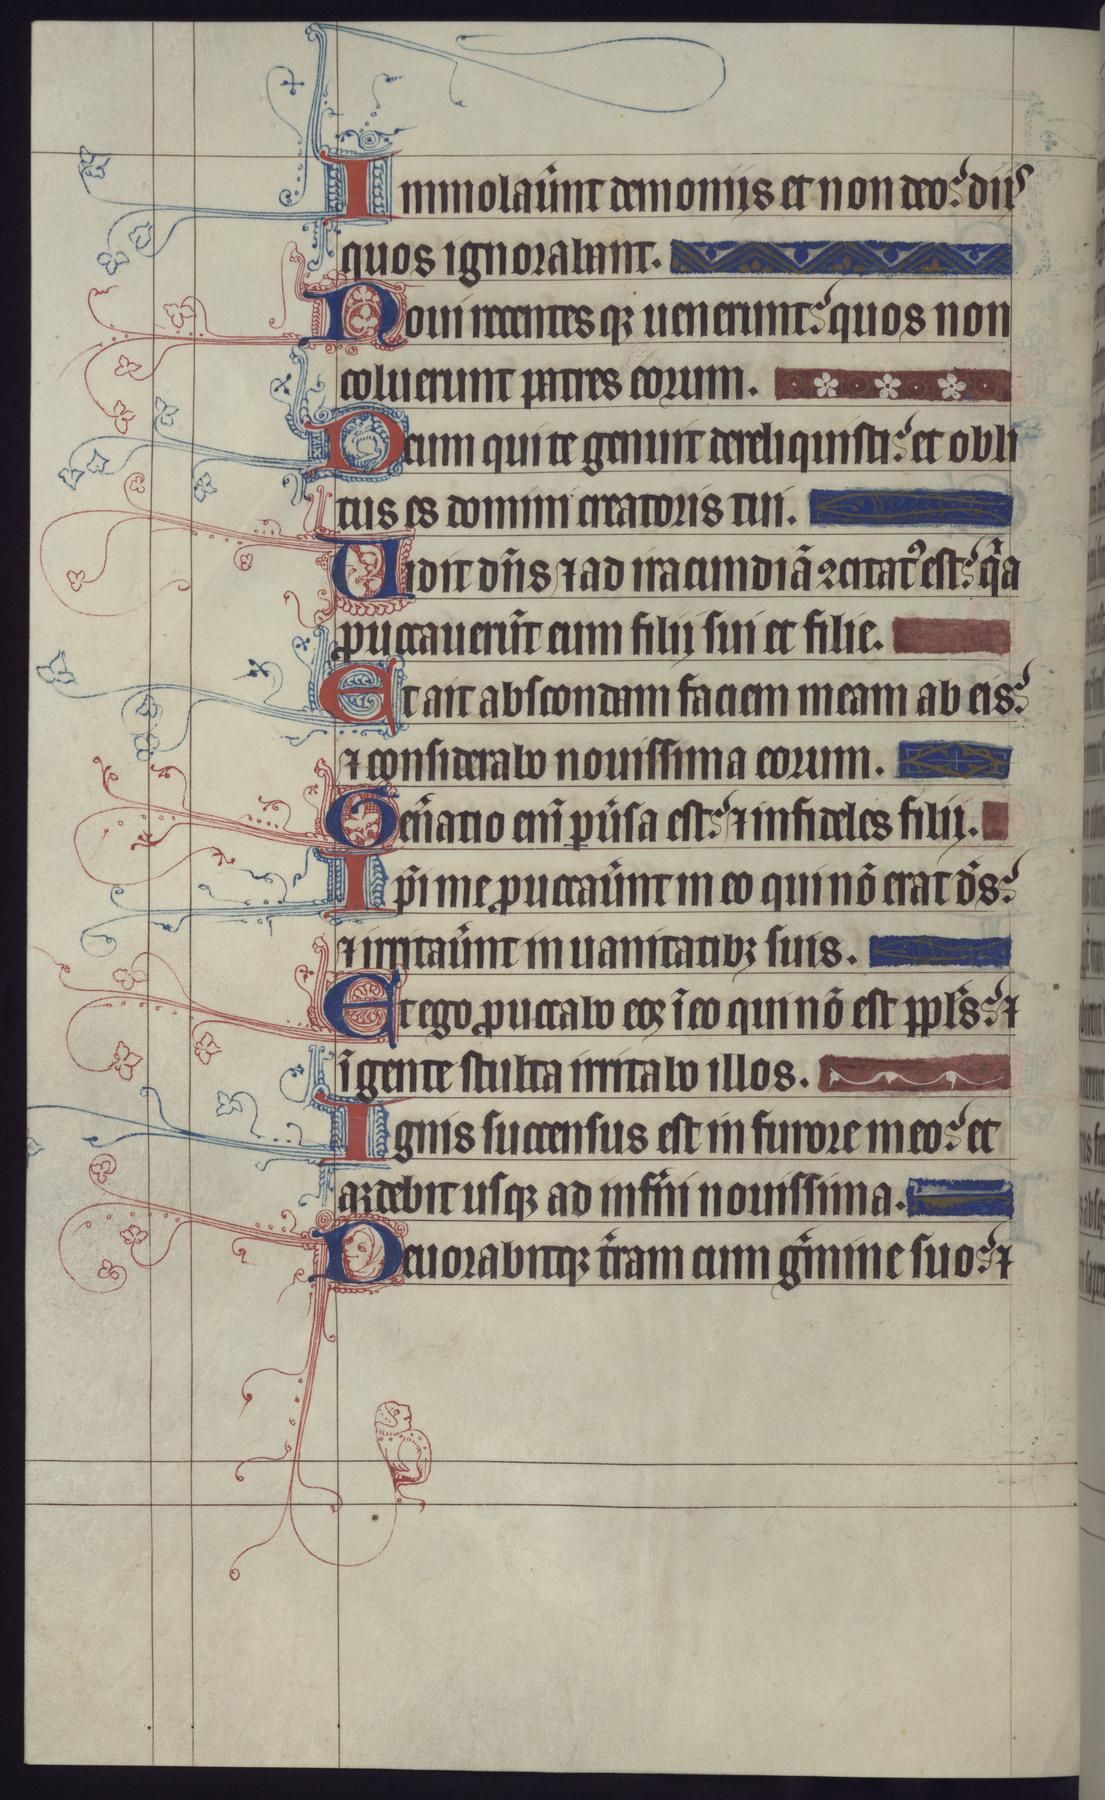 Immolaūnt demoniis et non deo: diis
quos ignorabant.
Noui recentesqꝫ uenerunt: quos non
coluerunt patres eorum.
Deum qui te genuit dereliquisti: et obli
tus es domini creatoris tui.
Uidit dn̄s ⁊ ad iracundiā ꝯcitatꝰ est: qͣa
ꝓuocauerūt eum filij sui et filie.
Et ait abscondam faciem meam ab eis:
⁊ considerabo nouissima eorum.
Gen̄atio enī ꝑūsa est: ⁊ infideles filij.
Ip̄i me ꝓuocaūnt in eo qui nō erat d̄s:
⁊ irritaūnt in uanitatibꝫ suis.
Et ego ꝓuocabo eoꝝ ī eo qui nō est ppl̄s: ⁊
ī gente stulta irritabo illos.
Ignis succensus est in furore meo: et
ardebit usqꝫ ad infn̄i nouissima.
Deuorabitqꝫ t̄ram cum gͥmine suo: ⁊